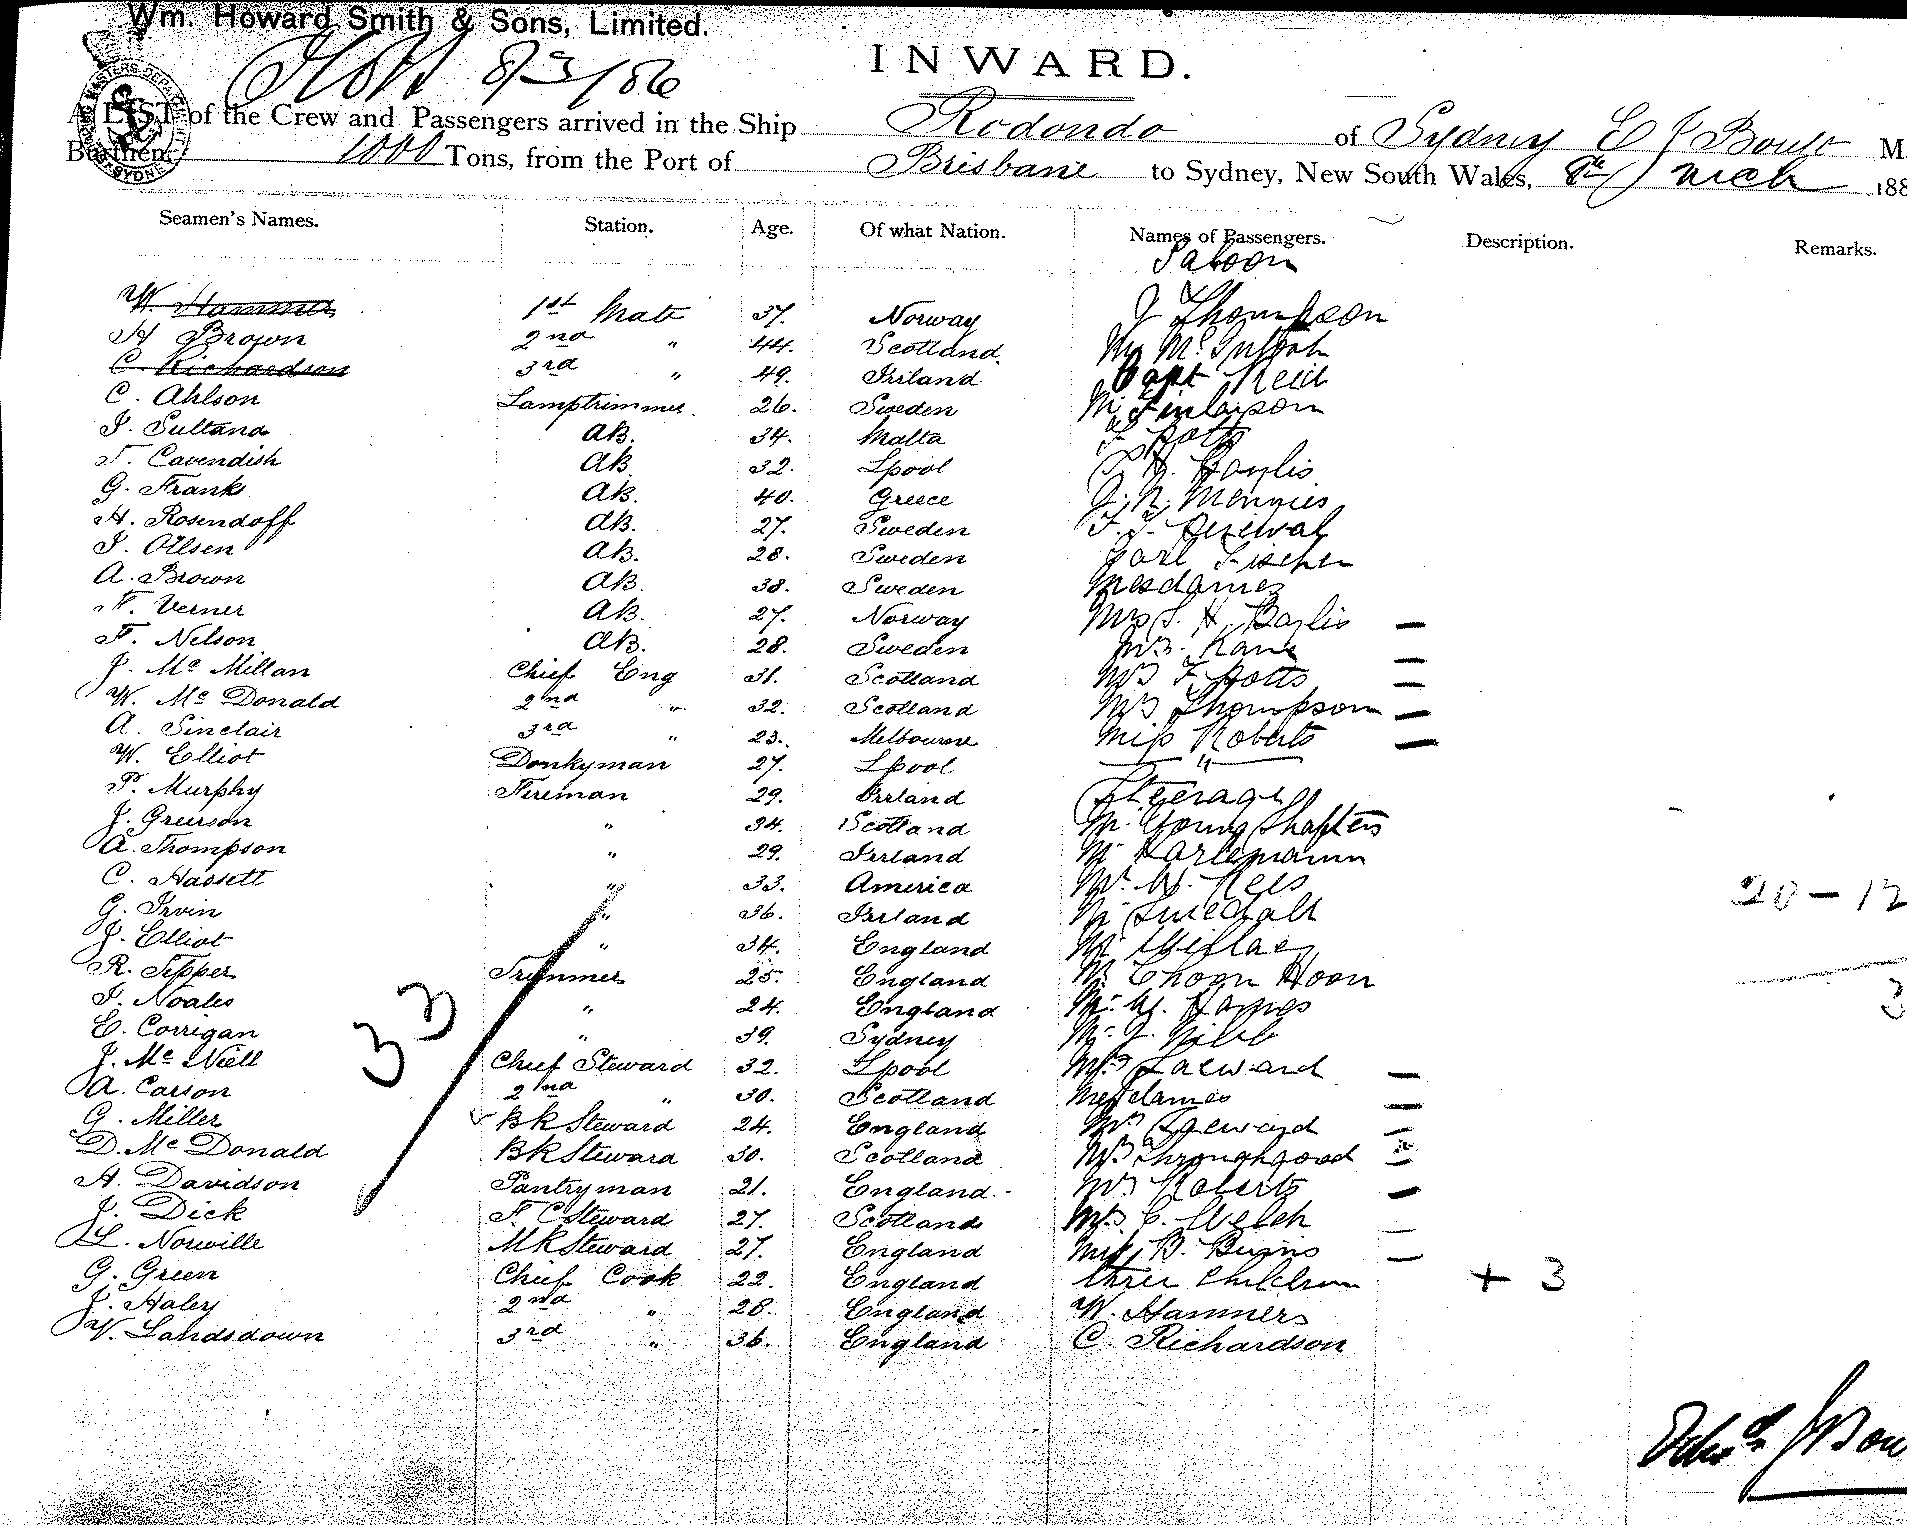 Wm. Howard Smith & Sons, Limited.
8/3/86
INWARD.
A LIST of the Crew and Passengers arrived in the Ship Rodondo of Sydney E J Boult M
Burthen, 1000 Tons, from the Port of Brisbane to Sydney, New South Wales, 8th March 188
Seamen's Names. Station. Age. Of what Nation. Names of Passengers. Description. Remarks.
Saloon
W. Hammers 1st Mate 37. Norway J Thompson
H Brown 2nd " 44. Scotland.
C. Richardson 3rd " 49. Irland Capt Reid
C. Ahlson Lamptrimmer. 26. Sweden Mr Finlaison
J. Sultana AB. 34. Malta F Potts
T. Cavendish AB 32. Lpool S. H. Baylis
G. Frank AB. 40. Greece J. N. Mennies
H. Rosendoff AB. 27. Sweden F. J. Percival
J. Ollsen AB. 28. Sweden Carl Fischer
A. Brown AB. 38. Sweden Mesdames
F. Verner AB. 27. Norway Mrs S. H. Baylis
F. Nelson AB. 28. Sweden Mrs. Kane
J. Mc Millan Chief Eng 31. Scotland Mrs F. Potts
W. Mc Donald 2nd " 32. Scotland Mrs Thompson
A. Sinclair 3rd " 23. Melbourne Miss Roberts
W. Elliot Donkyman 27. Lpool "
P. Murphy Fireman 29. Irrland Steerage
J. Greirson " 34. Scotland Mr. Young Shapters
A. Thompson " 29. Irrland Mr
C. Hassett " 33. America Mr. W. Rees
G. Irvin " 36. Irrland Mr
J. Elliot " 34. England Mr Millar
R. Tepper Trimmer 25. England Mr Choon Hoon
J. Noales " 24. England Mr. W.
E. Corrigan " 39. Sydney Mr. J.
J. Mc Niell Chief Steward 32. Lpool Mrs
A. Carson 2nd " 30. Scotland Mesdames
G. Miller BK Steward 24. England Mrs
D. Mc Donald BK Steward 30. Scotland Mrs Throughgood
A. Davidson Pantryman 21. England. Mrs Roberts
J. Dick F. C Steward 27. Scotland Mrs C. Welch
L. Norville MK Steward 27. England Miss B. Burns
G. Green Chief Cook 22. England three Children + 3
J. Haley 2nd " 28. England W. Hammers
W. Landsdown 3rd " 36. England C. Richardson
33
20 - 12
3